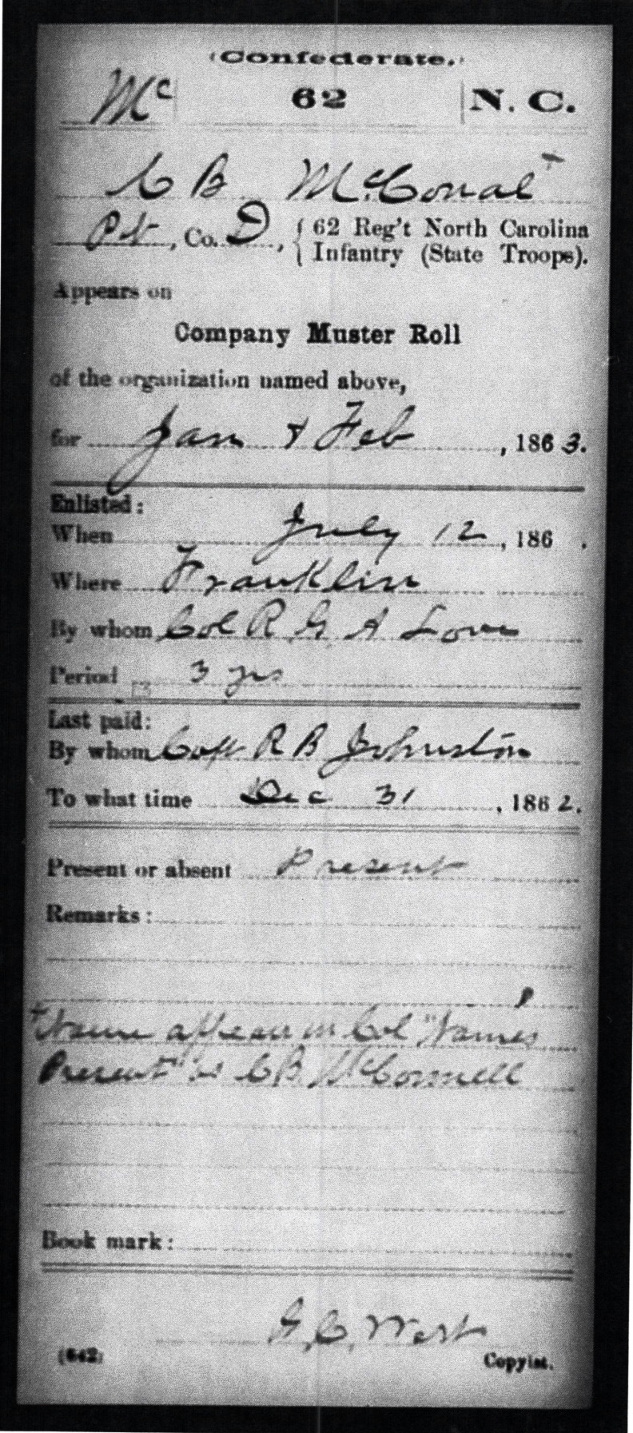 (Confederate.)
Mc 62 N. C.
C B McConal +
Pvt, Co. D, { 62 Reg't North Carolina
Infantry (State Troops).
Appears on
Company Muster Roll
of the organization named above,
for Jan & Feb, 1863.
Enlisted:
When July 12, 186 .
Where Franklin
By whom Col R G A Love
Period 3 yrs
Last paid:
By whom Capt R B Johnston
To what time Dec 31, 1862.
Present or absent Present
Remarks:
+Name appears in Col "Names
Present" as C B McConnell
Book mark:
G. C. West
(642) Copyist.